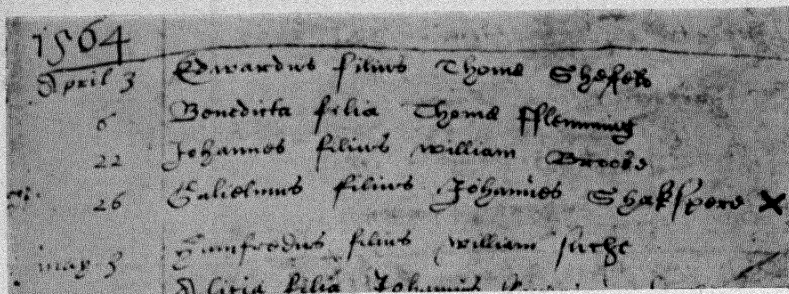 1564
April 3 Edwardus filius Thoma Shefeld
6 Benedicta filia Thoma fflemming
22 Johannes filius william Brooks
26 Gulielmus filius Johannes Shakspere X
may 3 Humfredus filius william
Alicia filia Johannis